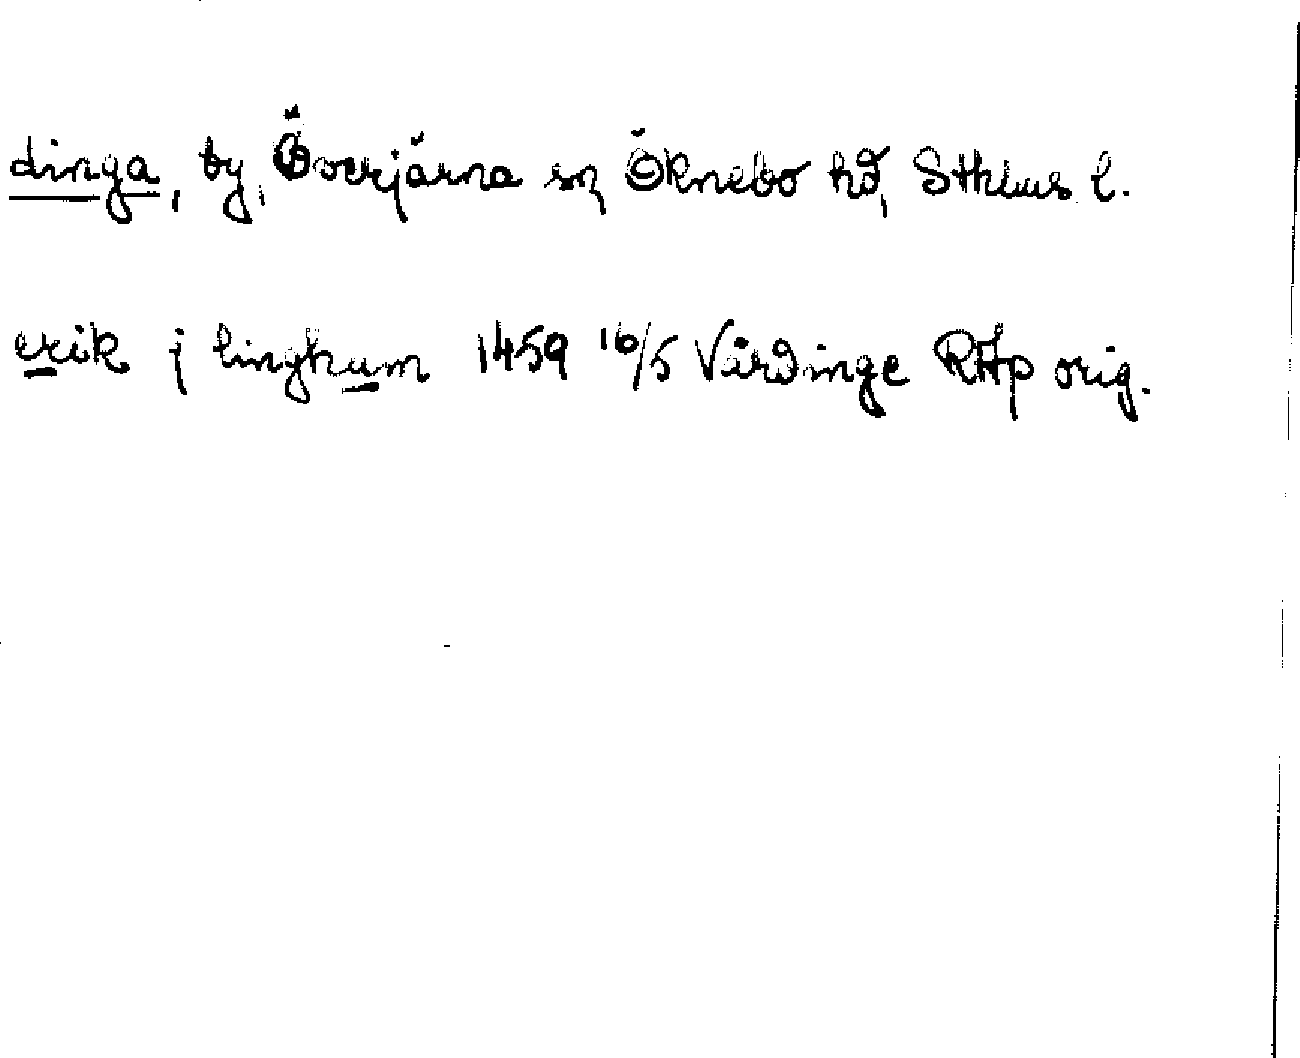 dinga, by, Överjärna sn, Öknebo hd, Sthlms l.
erik j linghum 1459 16/5 Vårdinge RAp orig.